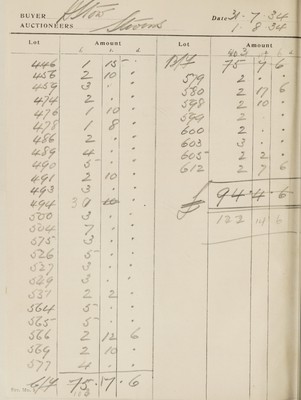 BUYER Stow
AUCTIONEERS Stevens
Date 31 - 7 34
1 - 8 34
Lot Amount
£ s. d.
446 1 15 -
456 2 10 "
459 3 " "
474 2 " "
476 1 10 "
478 1 8 "
486 2 " "
489 4 " "
490 5 " "
491 2 10 "
493 3 " "
494 10 "
500 3 " "
504 7 " "
575 3 " "
526 5 " "
527 3 " "
529 3 " "
537 2 2 "
564 5 " "
565 5 " "
566 2 12 6
569 2 10 "
577 4 " "
C/f 75 . 17 . 6
Lot Amount
£ s. d.
B/f 75 9 6
579 2 " "
580 2 17 6
598 2 10 "
599 2 " "
600 2 " "
603 3 " "
605 2 2 "
612 2 7 6
94 . 4 . 6
122 14 6